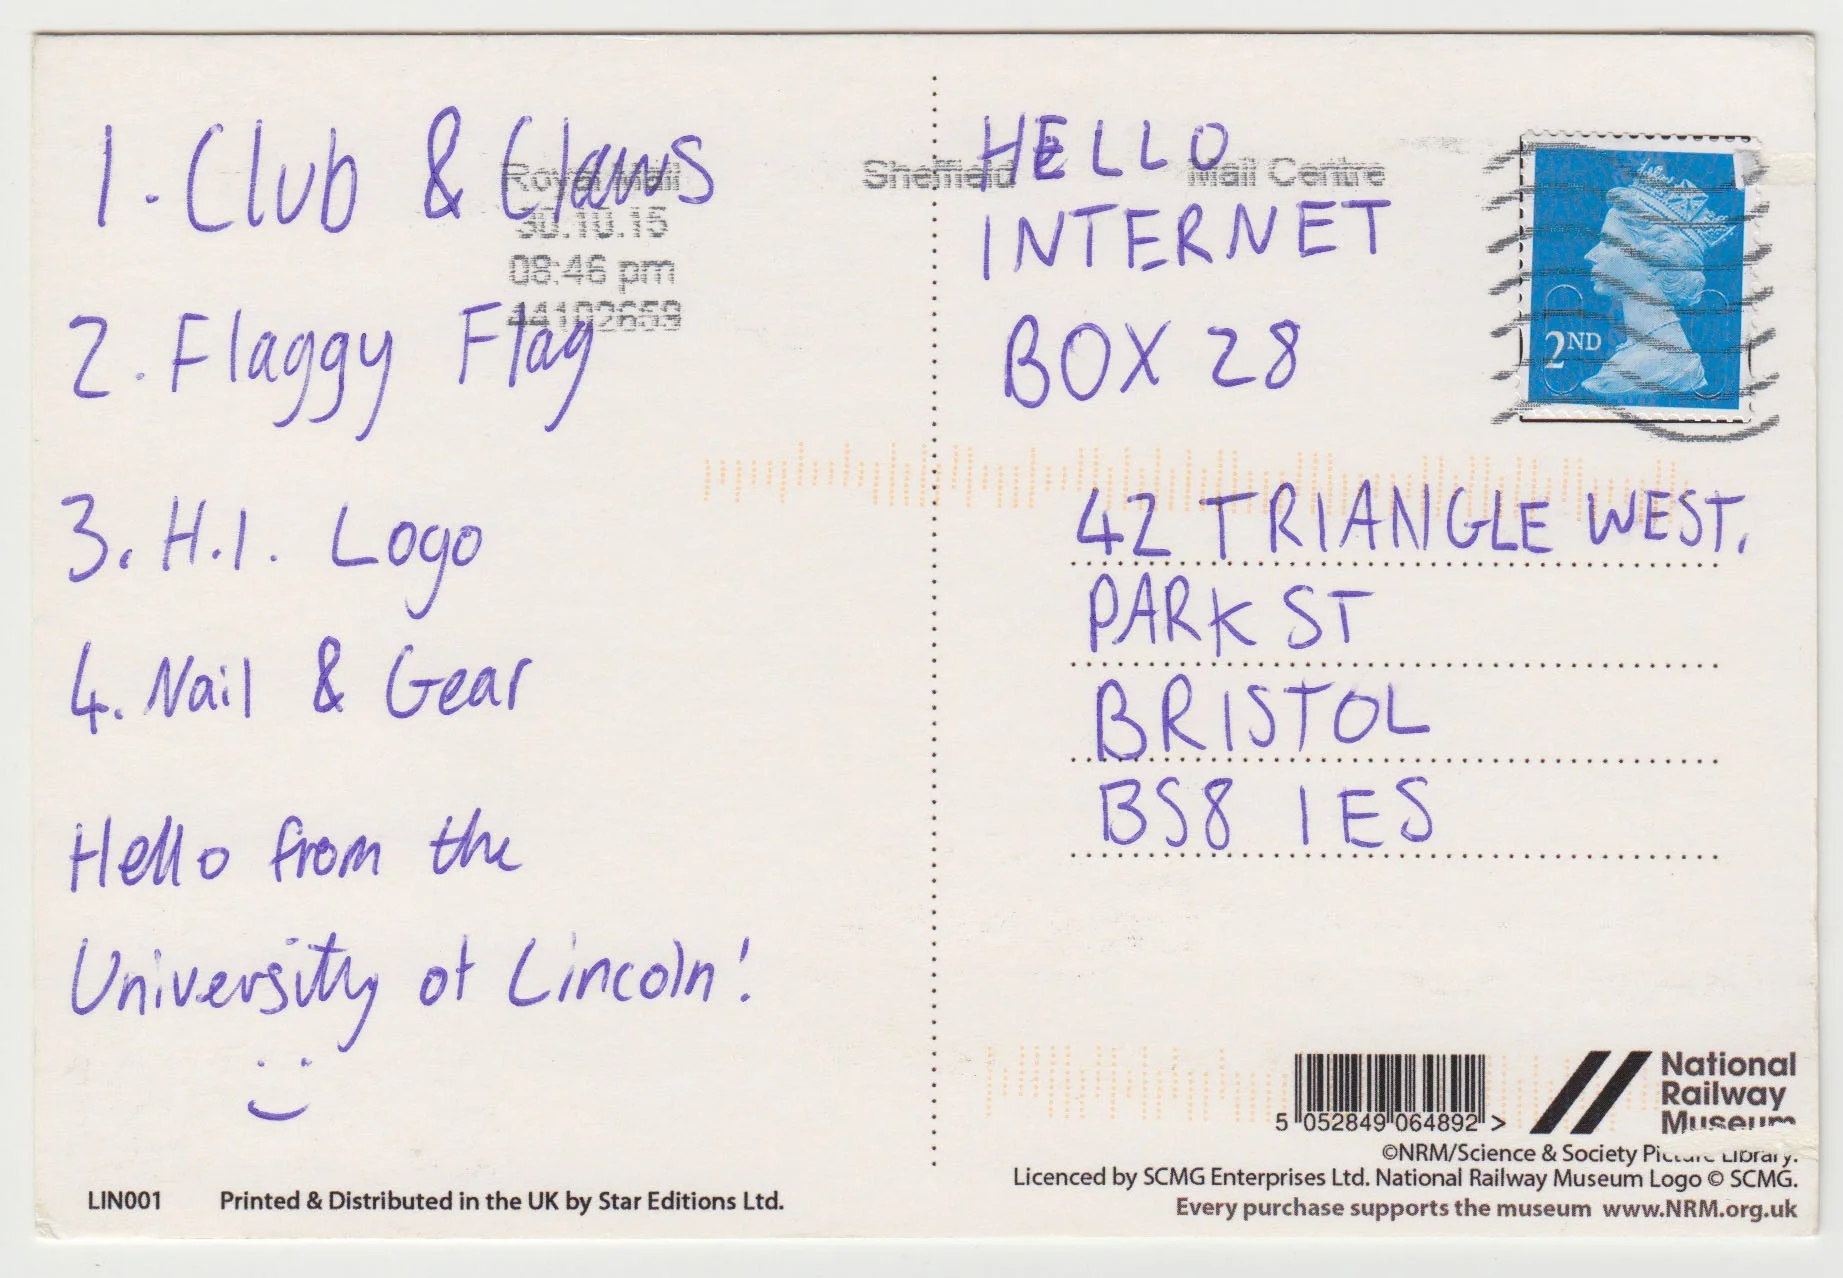 1. Club & Claws
2. Flaggy Flag
3. H.I. Logo
4. Nail & Gear
Hello from the
University of Lincoln!
LIN001 Printed & Distributed in the UK by Star Editions Ltd.
Royal Mail
30.10.15
08:46 pm
44102659
Sheffield Mail Centre
HELLO
INTERNET
BOX 28
2ND
42 TRIANGLE WEST,
PARK ST
BRISTOL
BS8 1ES
5 052849 064892 >
National
Railway
Museum
©NRM/Science & Society Picture Library.
Licenced by SCMG Enterprises Ltd. National Railway Museum Logo © SCMG.
Every purchase supports the museum www.NRM.org.uk